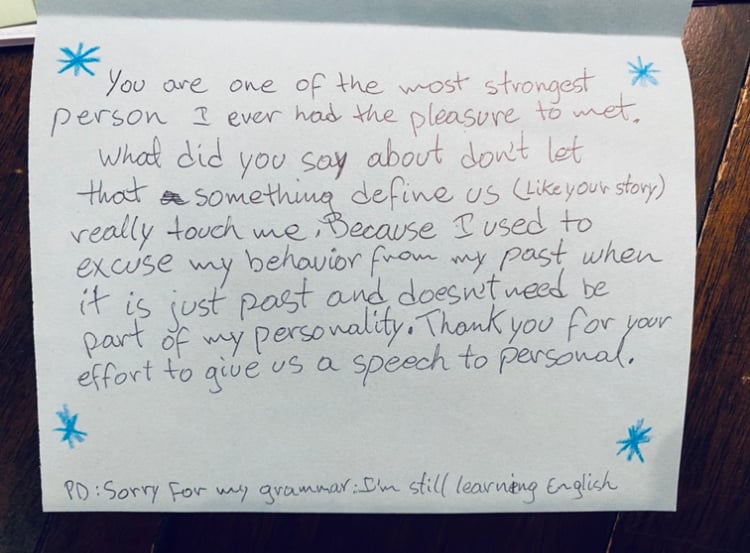 You are one of the most strongest
person I ever had the pleasure to met.
What did you say about don't let
that something define us (Like your story)
really touch me, Because I used to
excuse my behavior from my past when
it is just past and doesn't need be
part of my personality. Thank you for your
effort to give us a speech to personal.
PD: Sorry For my grammar. I'm still learning English